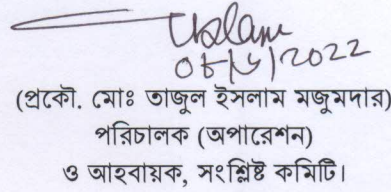 08/6/2022
(প্রকৌ. মোঃ তাজুল ইসলাম মজুমদার)
পরিচালক (অপারেশন)
ও আহবায়ক, সংশ্লিষ্ট কমিটি।